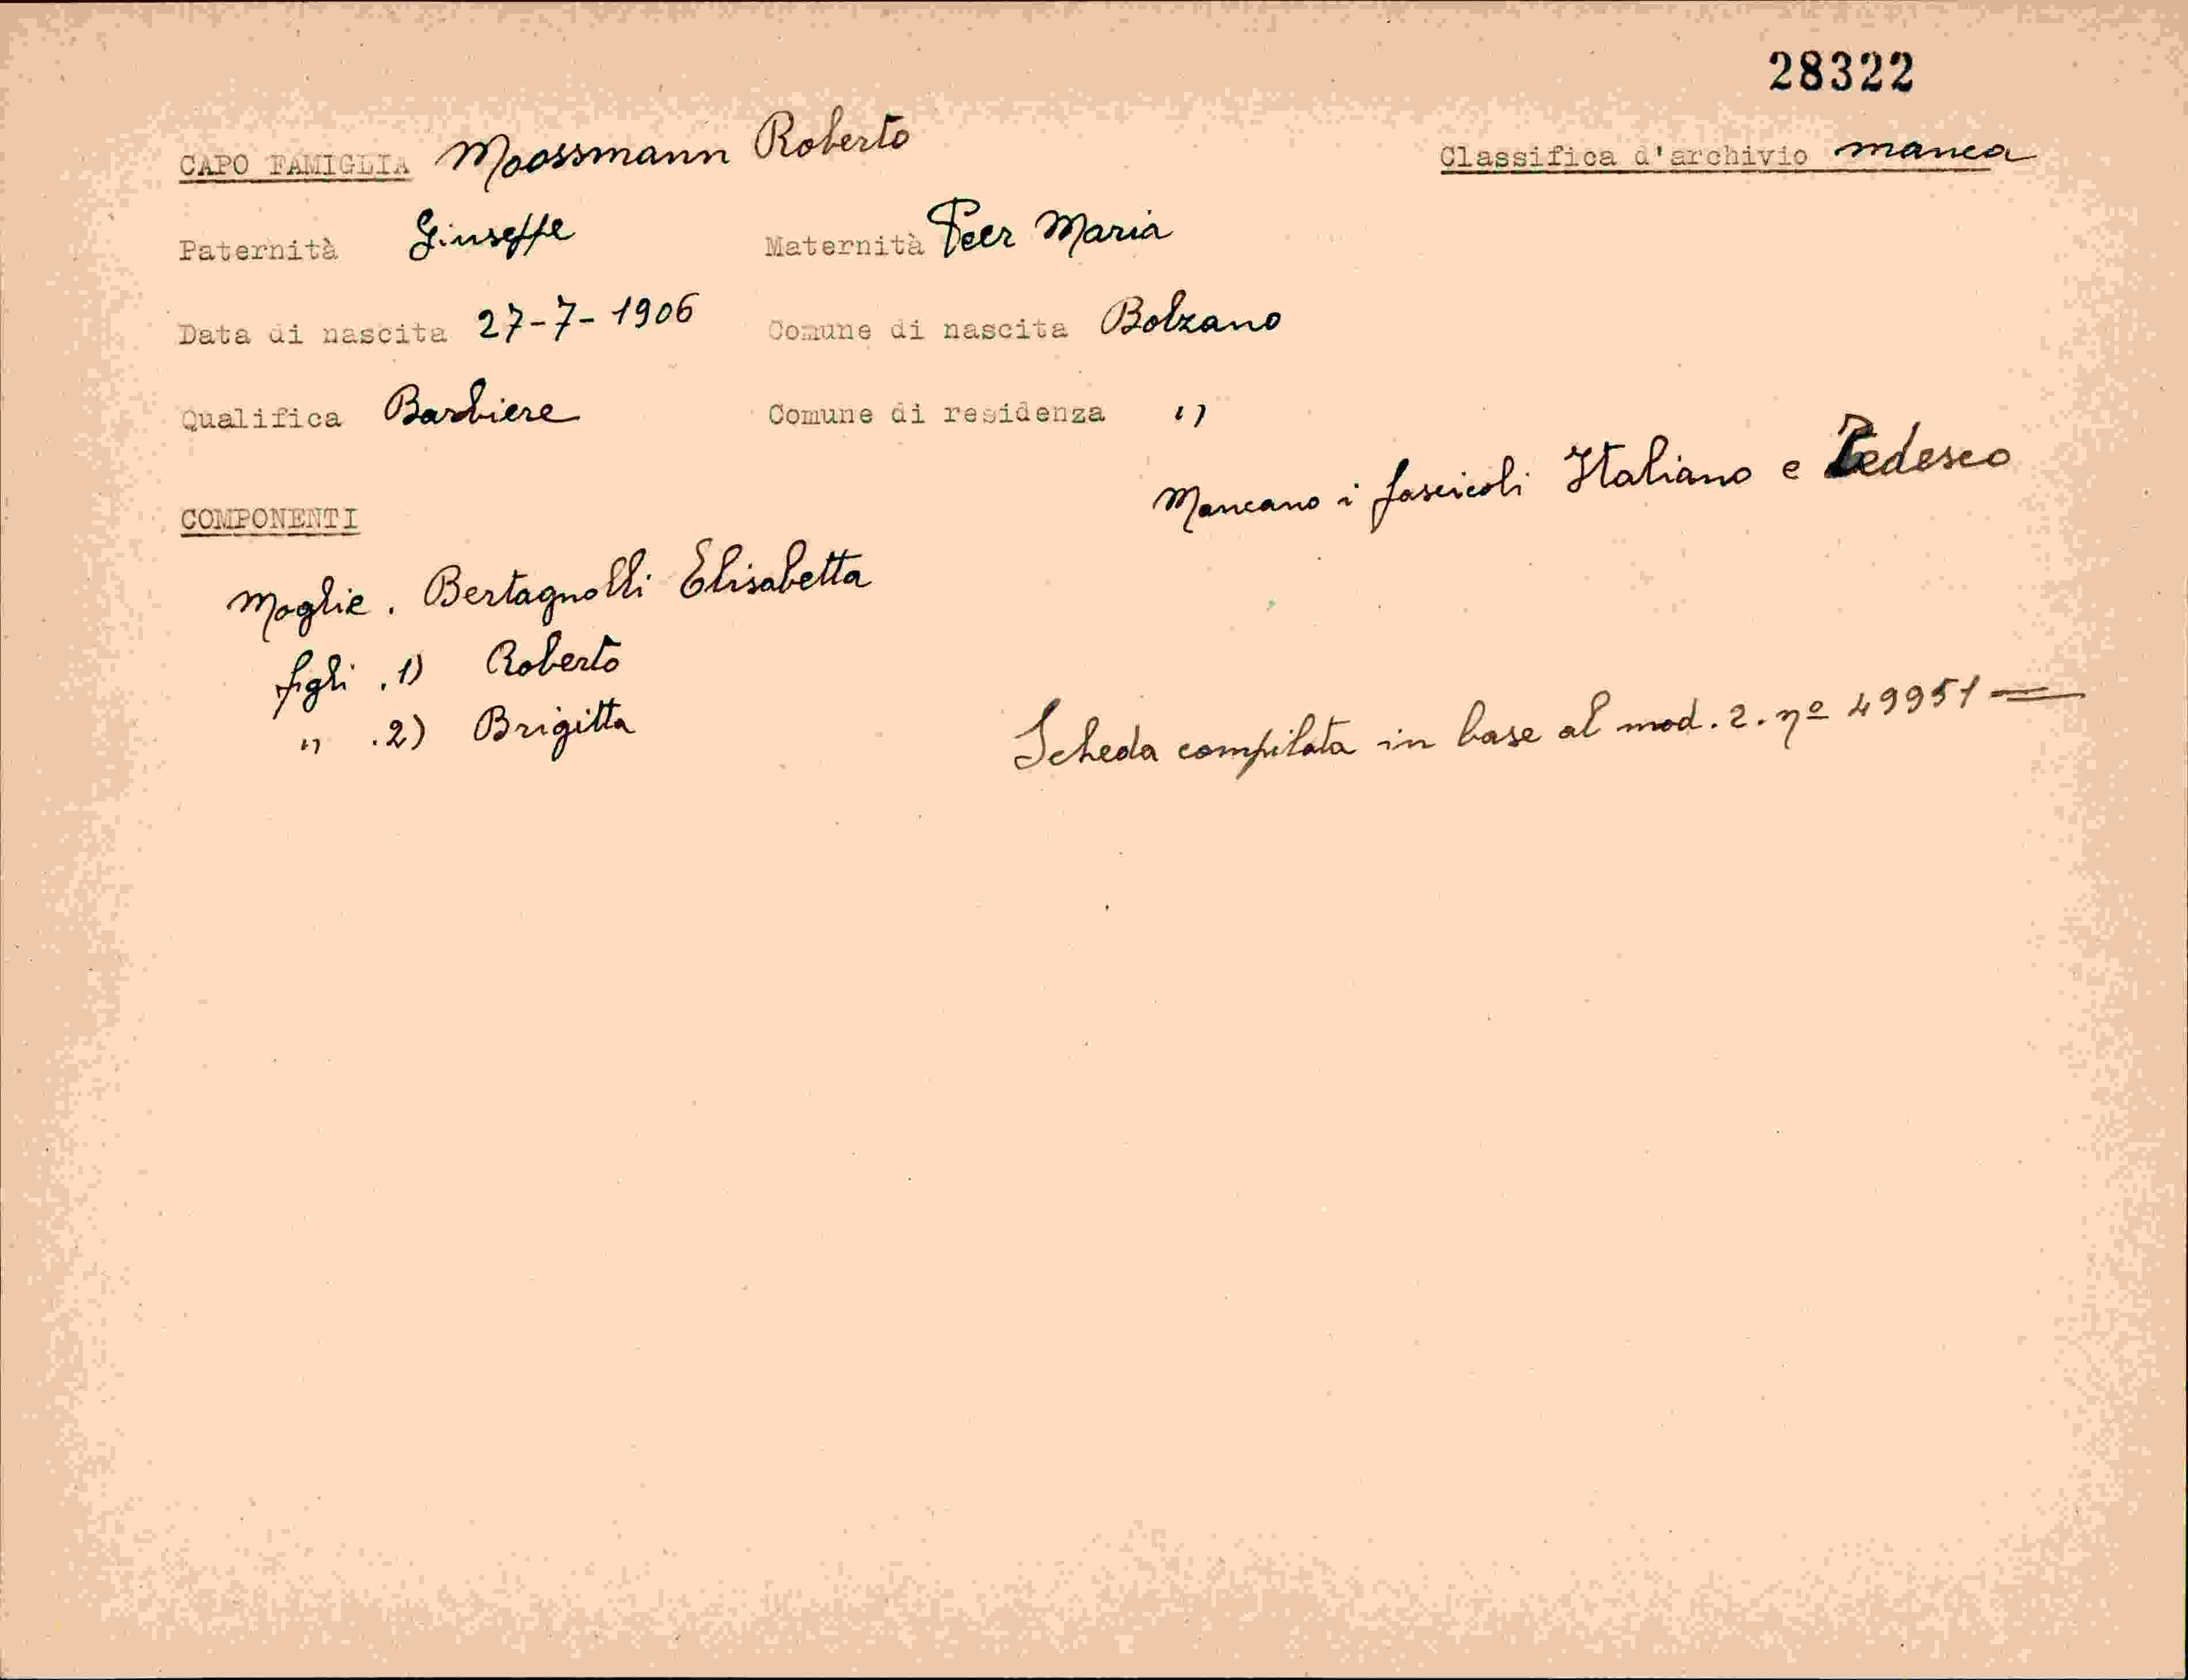 28322
CAPO FAMIGLIA Moossmann Roberto Classifica d'archivio manca
Paternità Giuseppe Maternità Peer Maria
Data di nascita 27-7-1906 Comune di nascita Bolzano
Qualifica Barbiere Comune di residenza "
Mancano i fascicoli Italiano e Tedesco
COMPONENTI
Moglie. Bertagnolli Elisabetta
figli .1) Roberto
" .2) Brigitta
Scheda compilata in base al mod. 2. nº 49951 =